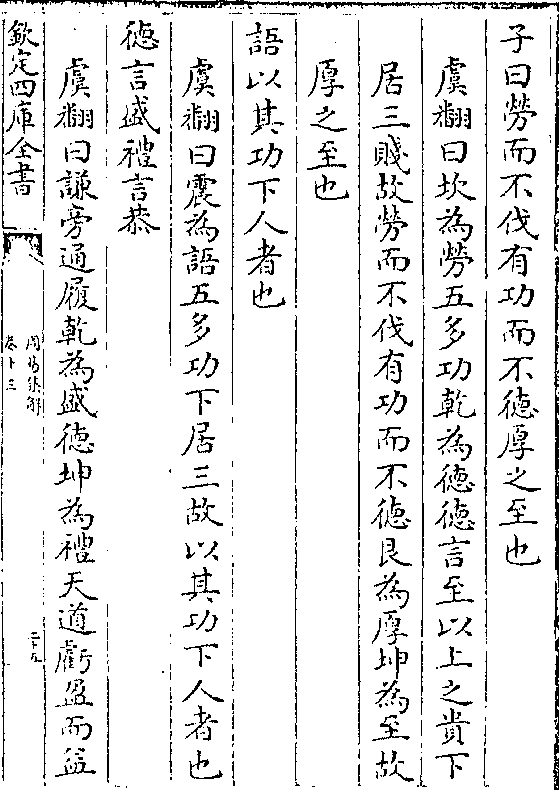 子曰勞而不伐有功而不德厚之至也
虞翻曰坎為勞五多功乾為德德言至以上之貴下
居三賤故勞而不伐有功而不德艮為厚坤為至故
厚之至也
語以其功下人者也
虞翻曰震為語五多功下居三故以其功下人者也
德言盛禮言恭
虞翻曰謙旁通履乾為盛德坤為禮天道虧盈而益
欽定四庫全書
周易集解
卷十三
二十五